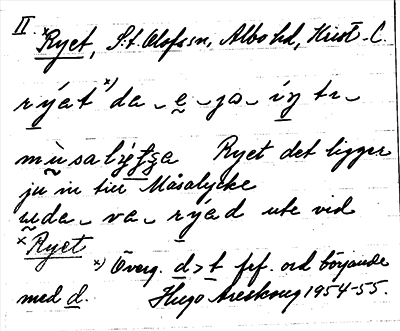 II
×Ryet, S:t Olofs sn, Albo hd, Krist. l.
rýat ×) da ‿ e ‿ ja ‿ íŋ te ‿
mùsalýʒʒa Ryet det ligger
ju in till Måsalycke
uda ‿ va ‿ rýad ute vid
×Ryet
×) Överg. d > t fef. ord började
med d. Hugo Areskoug 1954-55.